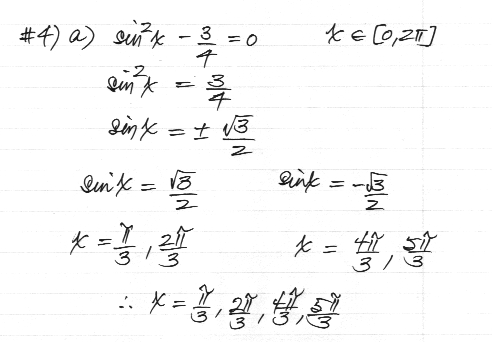 #4) a) sin²x - 3/4 = 0 x ∈ [0,2π]
sin²x = 3/4
sin x = ± √3/2
sin x = √3/2 sin x = -√3/2
x = π/3, 2π/3 x = 4π/3, 5π/3
∴ x = π/3, 2π/3, 4π/3, 5π/3